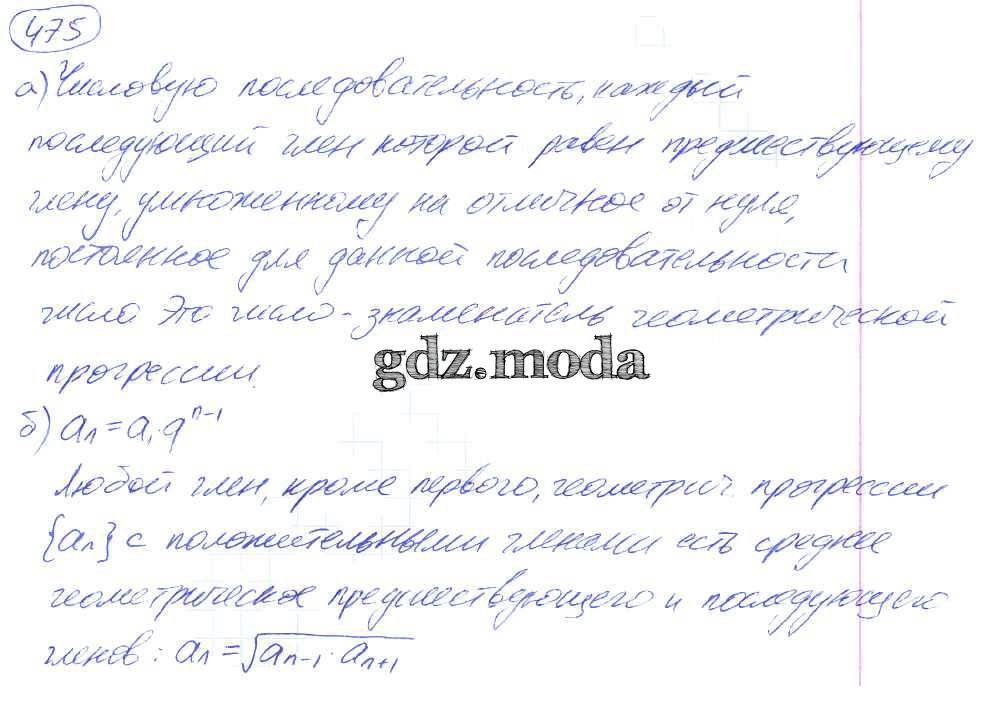 475
а) Числовую последовательность, каждый
последующий член которой равен предшествующему
члену, умноженному на отличное от нуля,
постоянное для данной последовательности
числа Это число - знаменатель геометрической
прогрессии.
gdz.moda
б) aₙ = a₁·qⁿ⁻¹
Любой член, кроме первого, геометрич. прогрессии
{aₙ} с положительными членами есть среднее
геометрическое предшествующего и последующего
членов: aₙ = √(aₙ₋₁·aₙ₊₁)